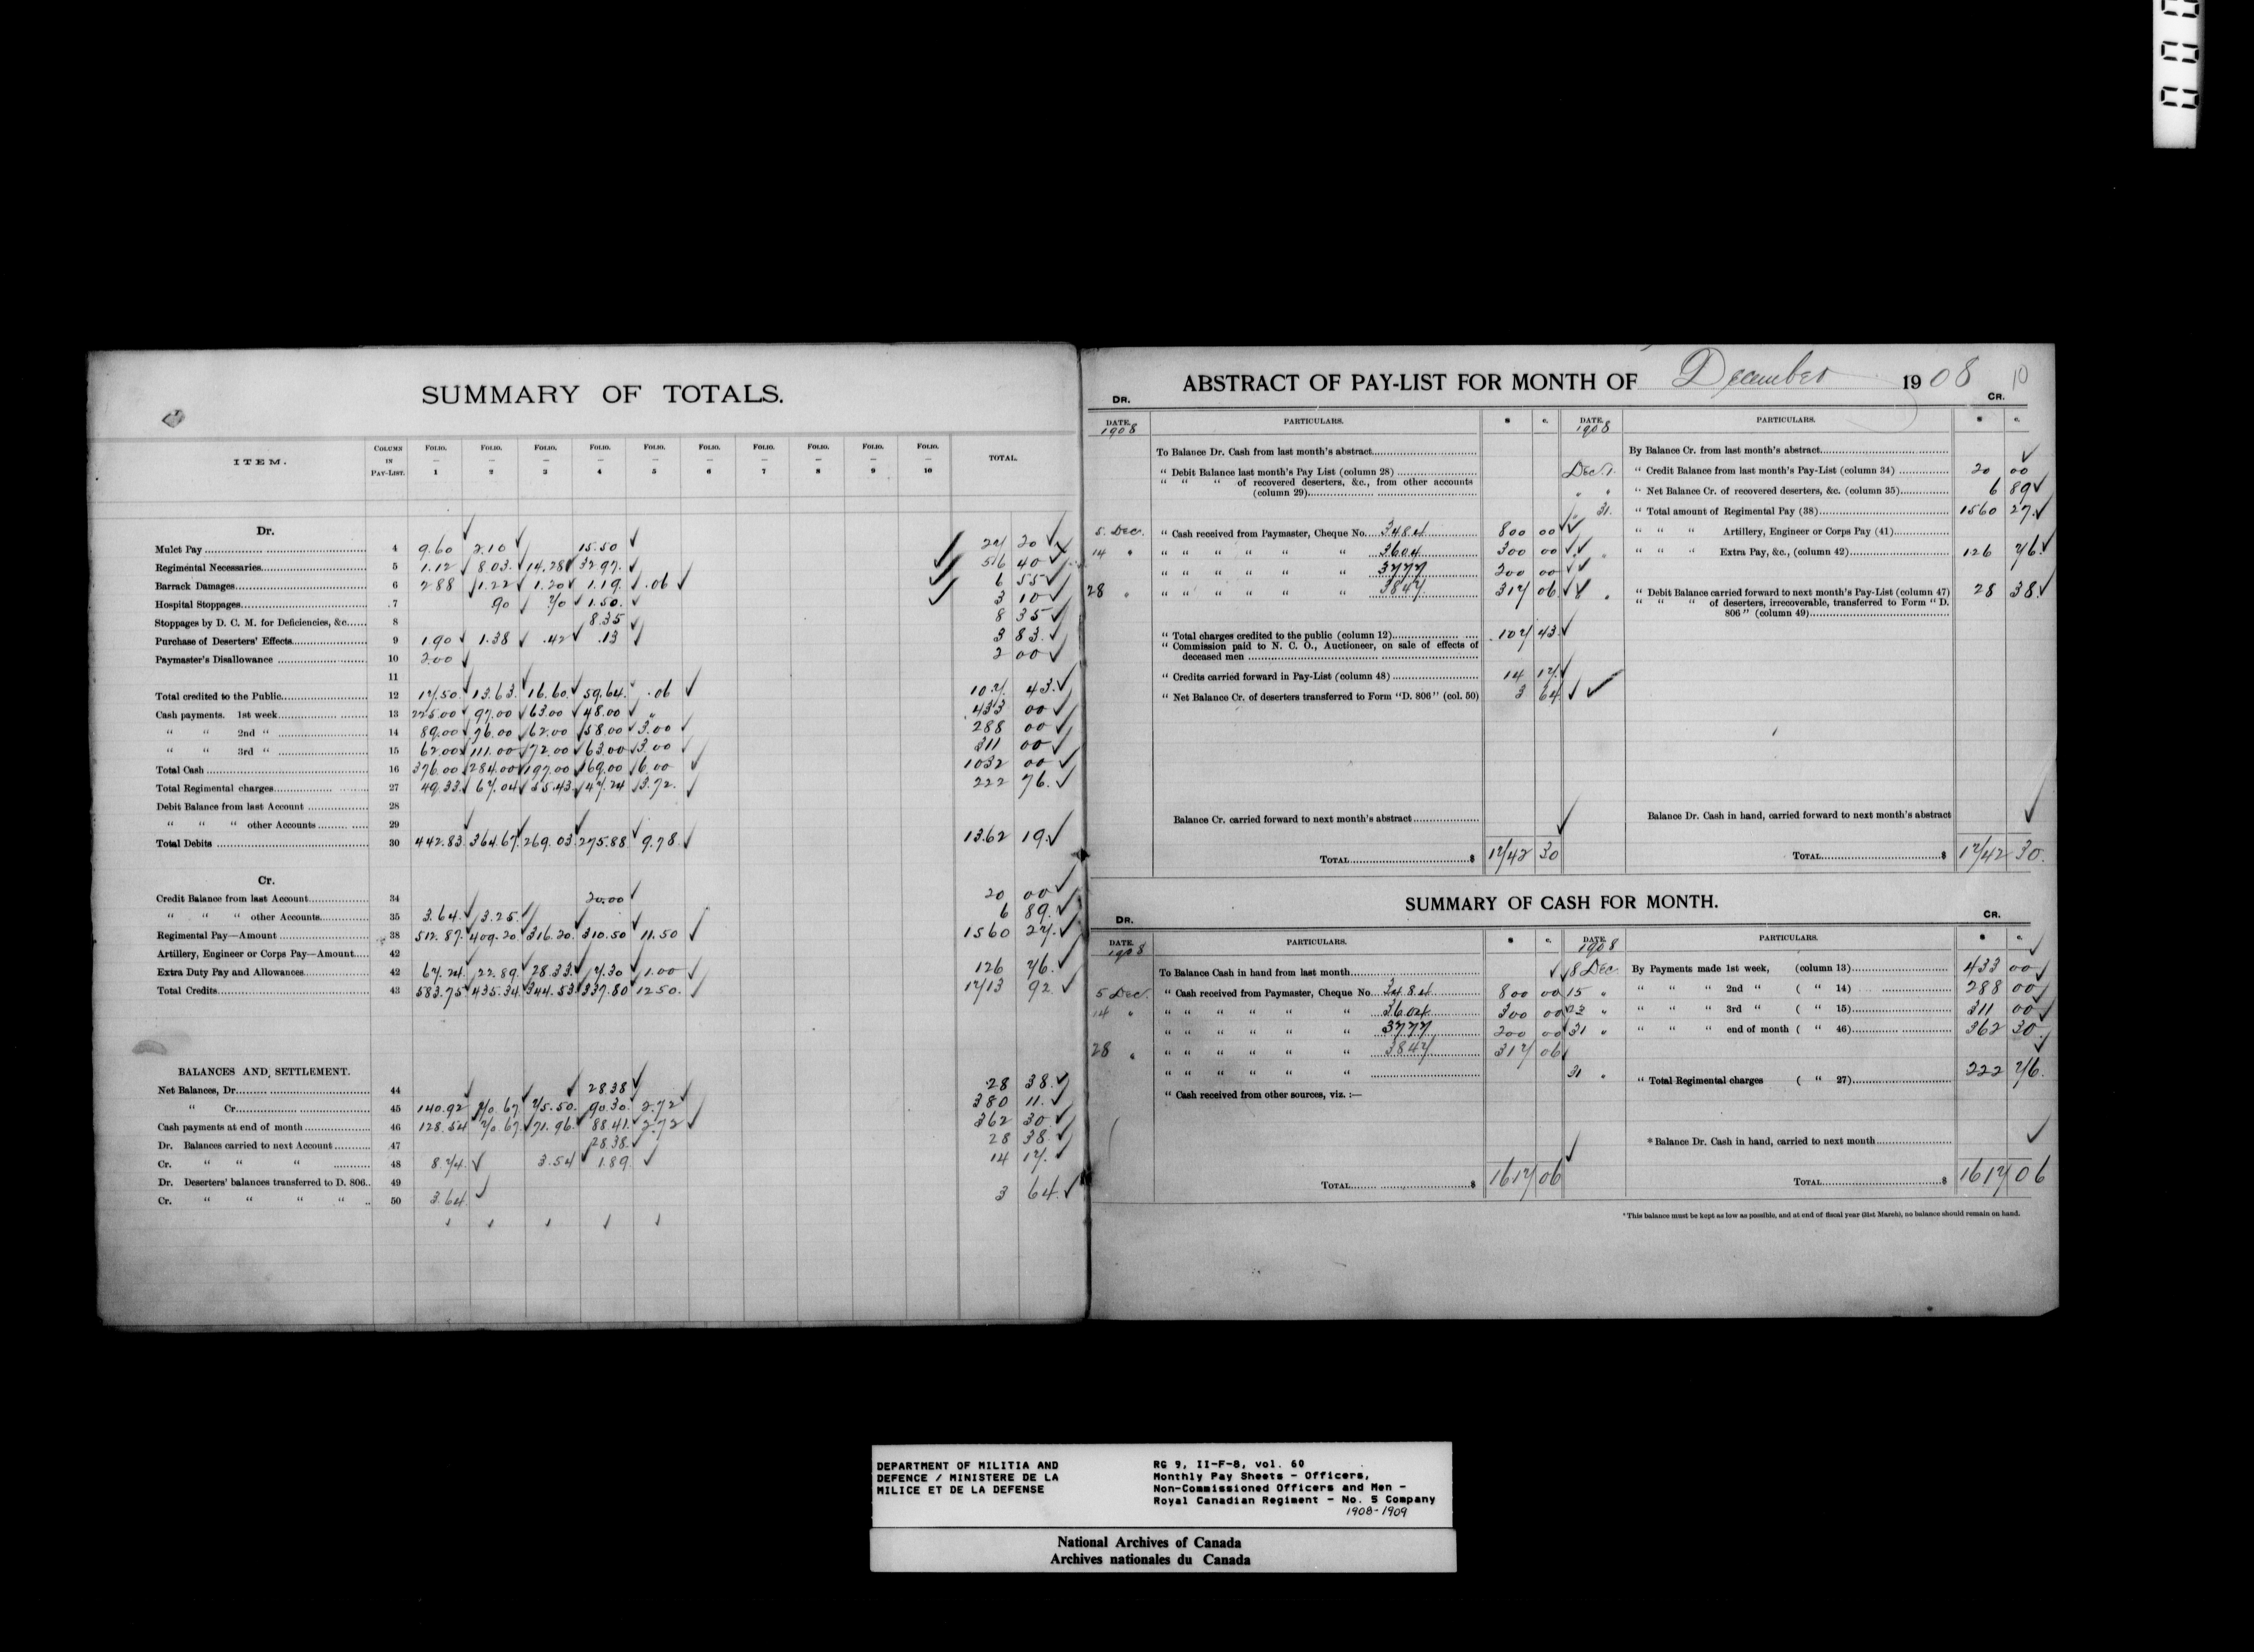 SUMMARY OF TOTALS.
ITEM. COLUMN IN PAY-LIST. FOLIO. — 1 FOLIO. — 2 FOLIO. — 3 FOLIO. — 4 FOLIO. — 5 FOLIO. — 6 FOLIO. — 7 FOLIO. — 8 FOLIO. — 9 FOLIO. — 10 TOTAL.
Dr.
Mulct Pay 4 9.60 2.10 15.50 27 20
Regimental Necessaries 5 1.12 8.03 14.28 32.97 56 40
Barrack Damages 6 2.88 1.22 1.20 1.19 .06 6 55
Hospital Stoppages 7 90 70 1.50 3 10
Stoppages by D. C. M. for Deficiencies, &c. 8 8.35 8 35
Purchase of Deserters' Effects 9 1.90 1.38 .42 .13 3 83
Paymaster's Disallowance 10 2.00 2 00
11
Total credited to the Public 12 17.50 13.63 16.60 59.64 .06 107 43
Cash payments. 1st week 13 225.00 97.00 63.00 48.00 " 433 00
" " 2nd " 14 89.00 76.00 62.00 58.00 3.00 288 00
" " 3rd " 15 62.00 111.00 72.00 63.00 3.00 311 00
Total Cash 16 376.00 284.00 197.00 169.00 6.00 1032 00
Total Regimental charges 27 49.33 67.04 55.43 47.24 3.72 222 76
Debit Balance from last Account 28
" " " other Accounts 29
Total Debits 30 442.83 364.67 269.03 275.88 9.78 1362 19
Cr.
Credit Balance from last Account 34 20.00 20 00
" " " other Accounts 35 3.64 3.25 6 89
Regimental Pay—Amount 38 512.87 409.20 316.20 310.50 11.50 1560 27
Artillery, Engineer or Corps Pay—Amount 42
Extra Duty Pay and Allowances 42 67.24 22.89 28.33 7.30 1.00 126 76
Total Credits 43 583.75 435.34 344.53 337.80 12.50 1713 92
BALANCES AND SETTLEMENT.
Net Balances, Dr. 44 28 38 28 38
" Cr. 45 140.92 70.67 75.50 90.30 2.72 380 11
Cash payments at end of month 46 128.54 70.67 71.96 88.41 2.72 362 30
Dr. Balances carried to next Account 47 28 38 28 38
Cr. " " " 48 8.74 3.54 1.89 14 17
Dr. Deserters' balances transferred to D. 806 49
Cr. " " " " 50 3.64 3 64
ABSTRACT OF PAY-LIST FOR MONTH OF December 1908
10
DR. CR.
DATE. 1908 PARTICULARS. $ c. DATE. 1908 PARTICULARS. $ c.
To Balance Dr. Cash from last month's abstract
" Debit Balance last month's Pay List (column 28)
" " " of recovered deserters, &c., from other accounts (column 29)
5 Dec. " Cash received from Paymaster, Cheque No. 3484 800 00
14 " " " " " " " 3604 300 00
" " " " " " 3777 200 00
28 " " " " " " " 3847 317 06
" Total charges credited to the public (column 12) 107 43
" Commission paid to N. C. O., Auctioneer, on sale of effects of deceased men
" Credits carried forward in Pay-List (column 48) 14 17
" Net Balance Cr. of deserters transferred to Form "D. 806" (col. 50) 3 64
Balance Cr. carried forward to next month's abstract
TOTAL $ 1742 30
By Balance Cr. from last month's abstract
Dec. 1. " Credit Balance from last month's Pay-List (column 34) 20 00
" " " Net Balance Cr. of recovered deserters, &c. (column 35) 6 89
" 31. " Total amount of Regimental Pay (38) 1560 27
" " " Artillery, Engineer or Corps Pay (41)
" " " " Extra Pay, &c., (column 42) 126 76
" " Debit Balance carried forward to next month's Pay-List (column 47) 28 38
" " " of deserters, irrecoverable, transferred to Form "D. 806" (column 49)
Balance Dr. Cash in hand, carried forward to next month's abstract
TOTAL $ 1742 30
SUMMARY OF CASH FOR MONTH.
DR. CR.
DATE. 1908 PARTICULARS. $ c. DATE. 1908 PARTICULARS. $ c.
To Balance Cash in hand from last month
5 Dec. " Cash received from Paymaster, Cheque No. 3484 800 00
14 " " " " " " " 3604 300 00
" " " " " " 3777 200 00
28 " " " " " " " 3847 317 06
" " " " " "
" Cash received from other sources, viz. :—
TOTAL $ 1617 06
8 Dec. By Payments made 1st week, (column 13) 433 00
15 " " " " 2nd " ( " 14) 288 00
22 " " " " 3rd " ( " 15) 311 00
31 " " " " end of month ( " 46) 362 30
31 " " Total Regimental charges ( " 27) 222 76
*Balance Dr. Cash in hand, carried to next month
TOTAL $ 1617 06
*This balance must be kept as low as possible, and at end of fiscal year (31st March), no balance should remain on hand.
DEPARTMENT OF MILITIA AND
DEFENCE / MINISTERE DE LA
MILICE ET DE LA DEFENSE
RG 9, II-F-8, vol. 60
Monthly Pay Sheets - Officers,
Non-Commissioned Officers and Men -
Royal Canadian Regiment - No. 5 Company
1908-1909
National Archives of Canada
Archives nationales du Canada